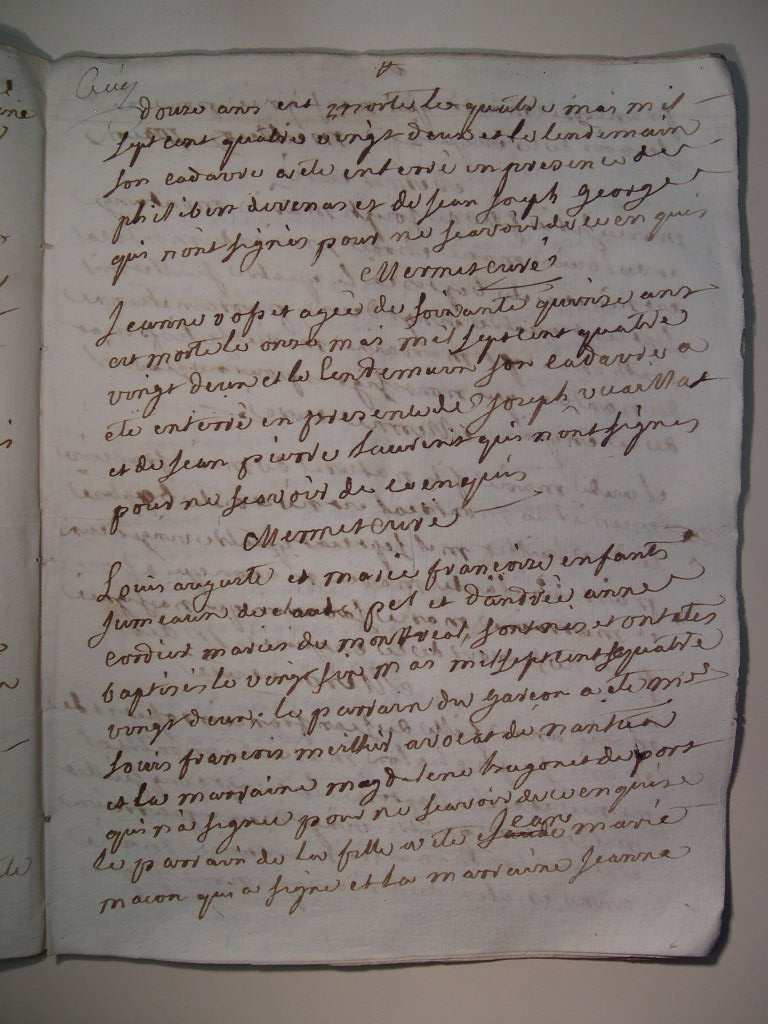 douze ans est morte le quatre mai mil
sept cent quatre vingt deux et le lendemain
son cadavre a ete enterré en presence de
philibert devenas et de jean joseph george
qui n'ont signés pour ne scavoir de ce enquis
Mermet curé
Jeanne vosset agée de soixante quinze ans
est morte le onze mai mil sept cent quatre
vingt deux et le lendemain son cadavre a
eté enterré en presence de joseph vuaillat
et de jean pierre laurent qui n'ont signés
pour ne scavoir de ce enquis
Mermet curé
Louis auguste et marie françoise enfants
jumeaux de claude pel et d'andrée anne
cordier mariés du montreal, sont nés et ont etés
baptisés le vingt six mai mil sept cent quatre
vingt deux; le parrain du garcon a eté mre
louis francois meillier avocat de nantua
et la marraine magdelene bragonet de port
qui n'a signee pour ne scavoir de ce enquise
le parrain de la fille a ete jean marie
macon qui a signé et la marraine jeanne